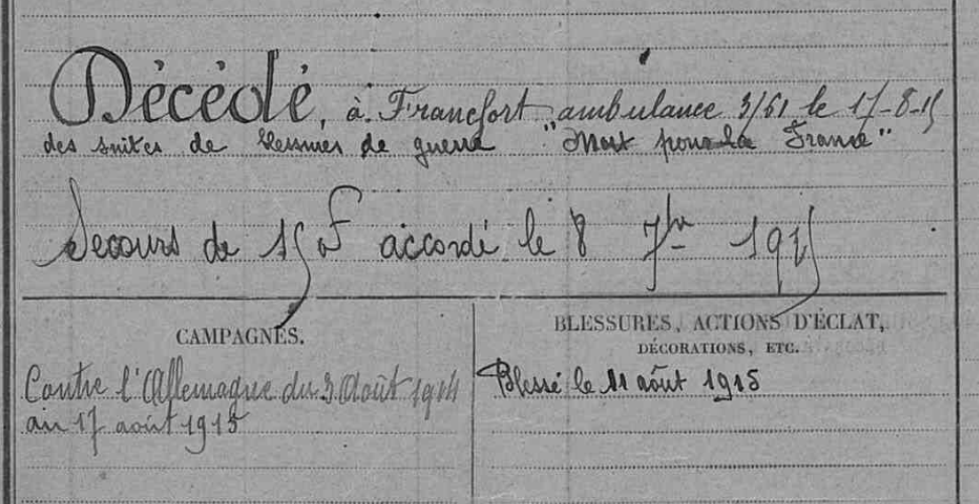 Décédé, à Francfort ambulance 3/61 le 17-8-15
des suites de blessures de guerre "Mort pour la France"
Secours de 150F accordé le 8 7bre 1915
CAMPAGNES.
Contre l'Allemagne du 3 Août 1914
au 17 août 1915
BLESSURES, ACTIONS D'ÉCLAT,
DÉCORATIONS, ETC.
Blessé le 11 août 1915